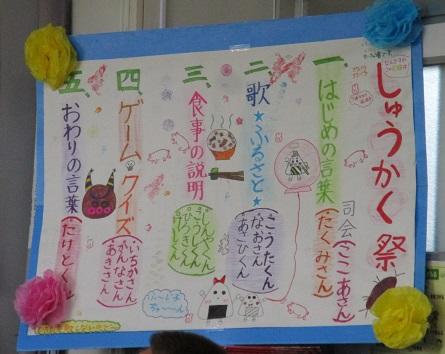 しゅうかく祭
司会(ここあさん)
一、はじめの言葉(たくみさん)
二、歌★ふるさと★
こうたくん
なおさん
あさひくん
三、食事の説明
四、ゲーム・クイズ
いちかさん
かんなさん
あきさん
五、おわりの言葉(たけとくん)